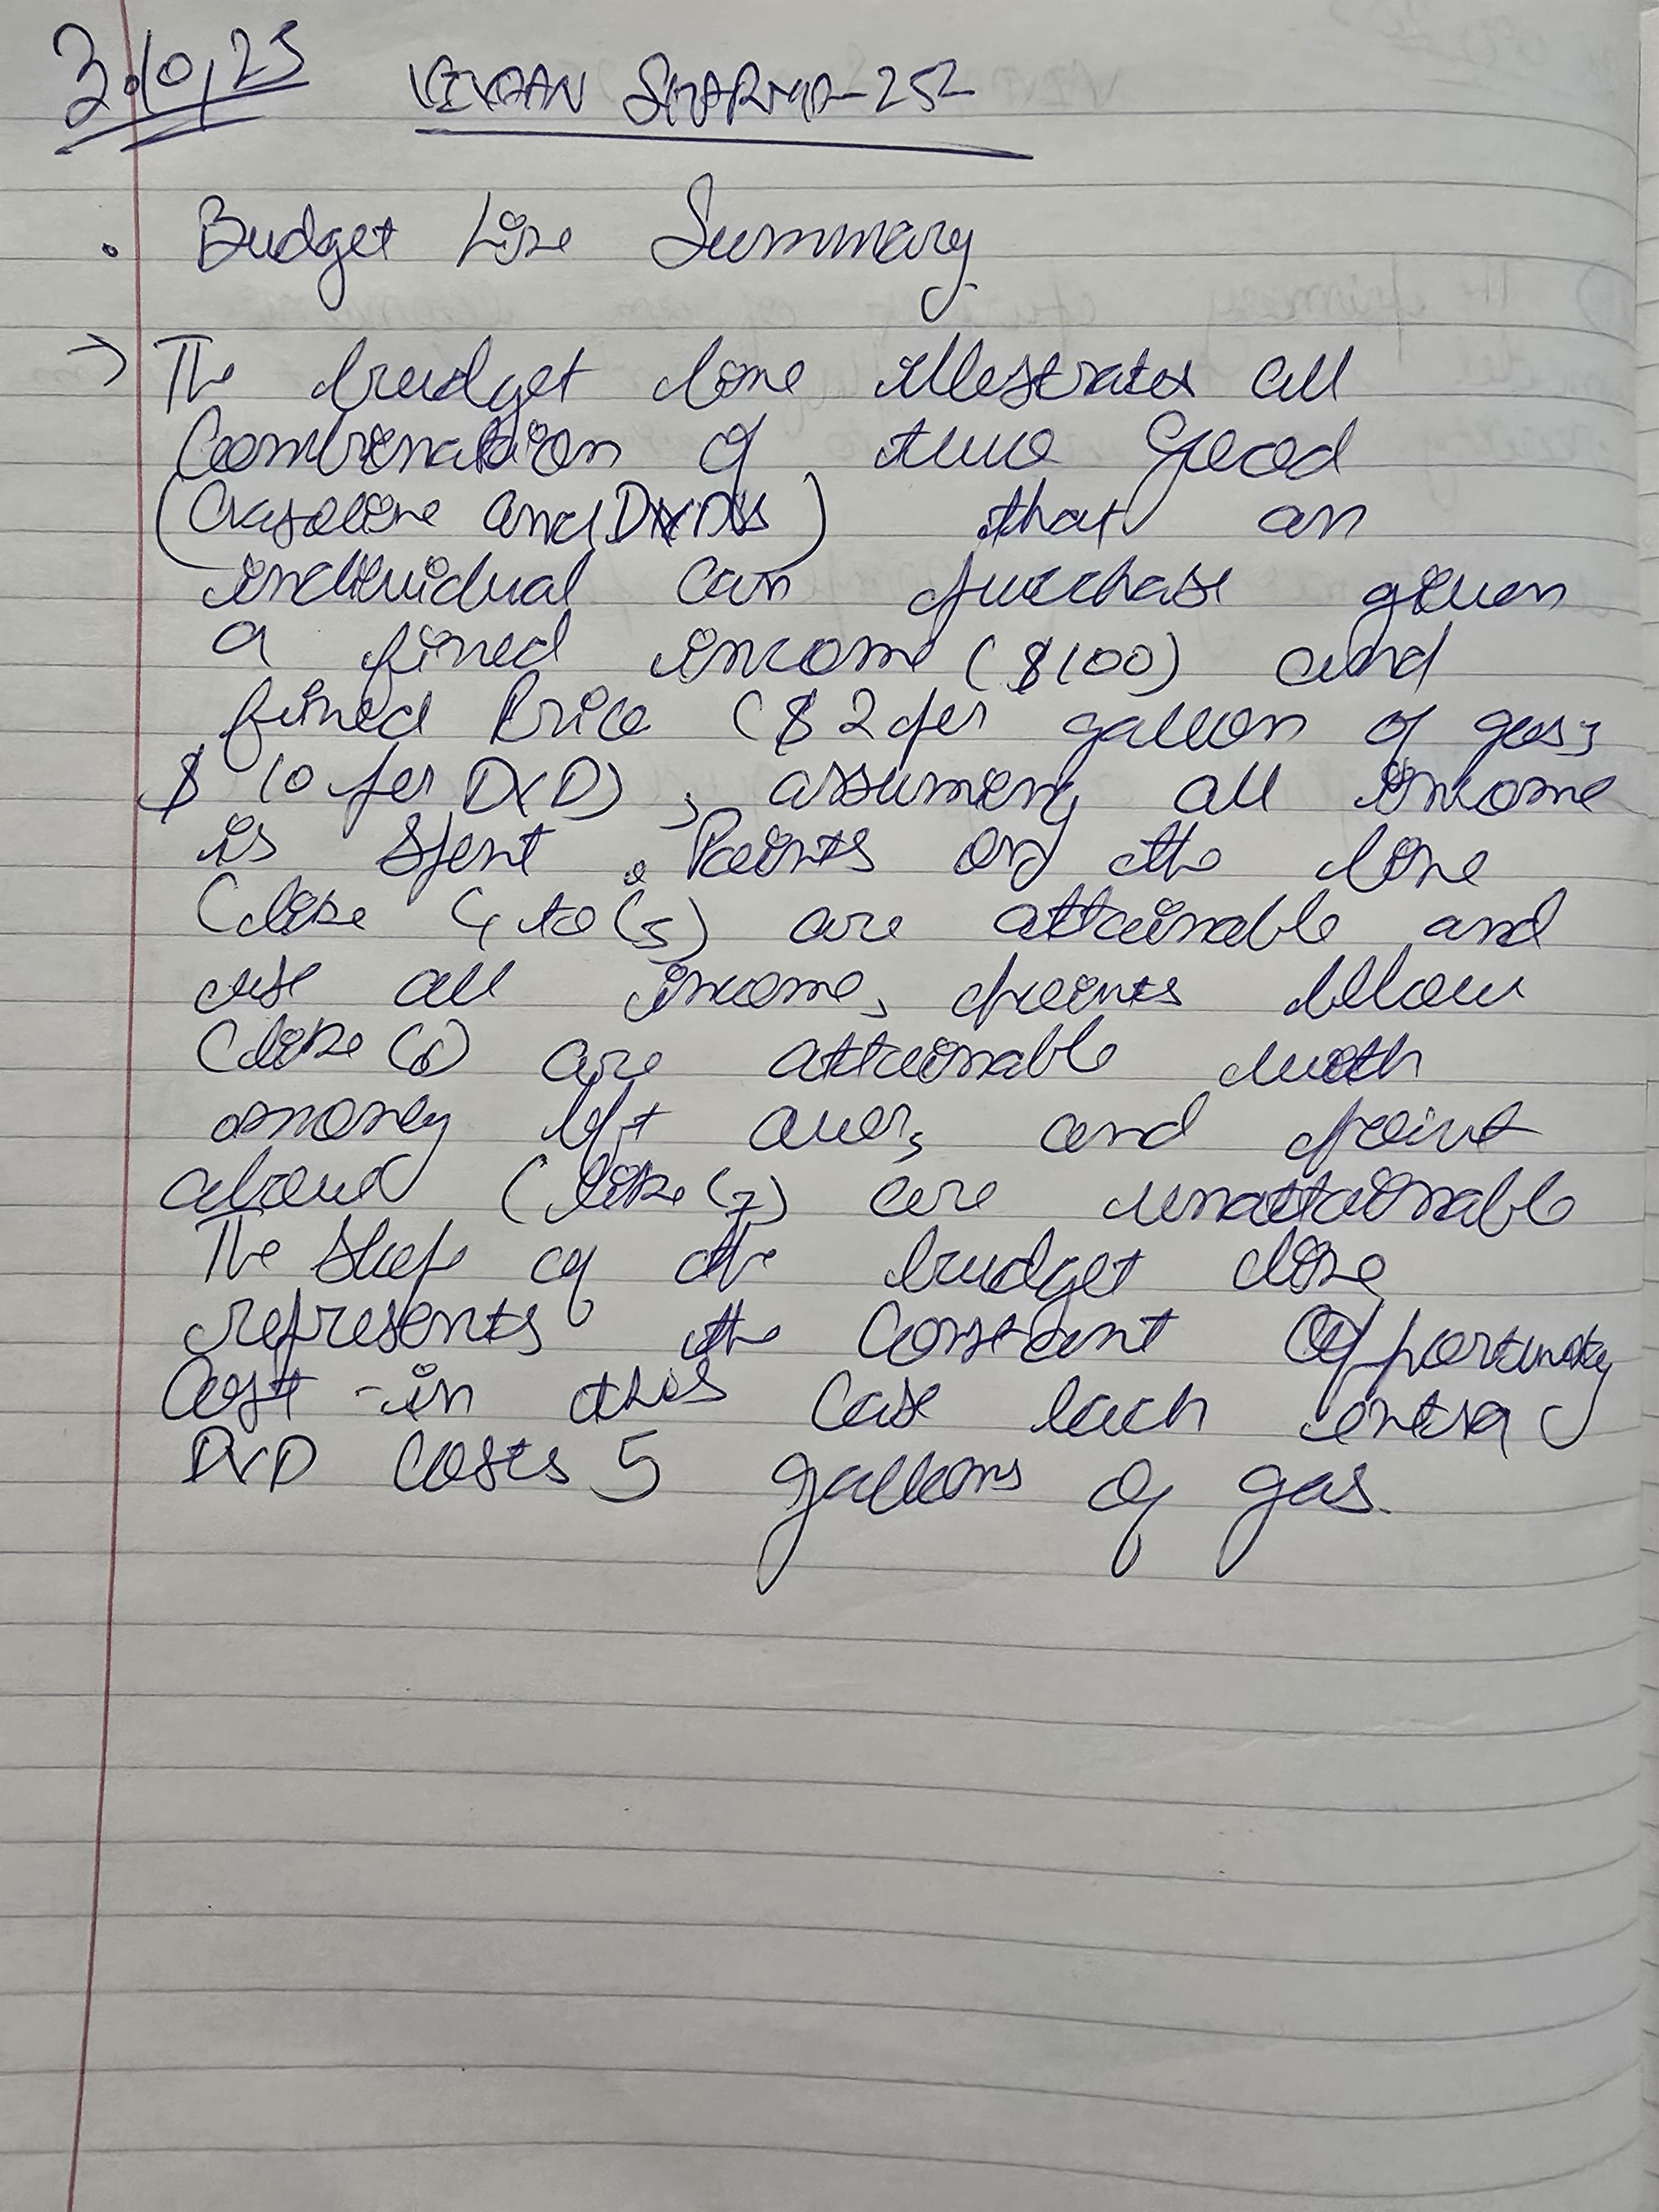 3.10.25 VIVAAN SHARMA-252
. Budget Line Summary
→ The budget line illustrates all
Combination of two good
(Gasoline and DVDs) that an
individual can purchase given
a fixed income ($100) and
fixed Price ($2 per gallon of gas;
$10 per DVD), assuming all income
is spent. Points on the line
(like C1 to C5) are attainable and
use all income, points below
(like C6) are attainable with
money left over, and point
above (like C7) are unattainable
The slope of the budget line
represents the Constant Opportunity
Cost - in this Case each extra
DVD Costs 5 gallons of gas.